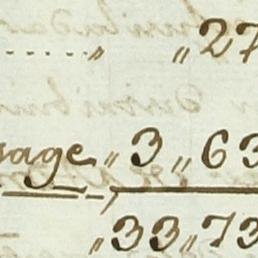 ..... „ „ 27
sage „ 3 „ 63
„ 33 „ 73